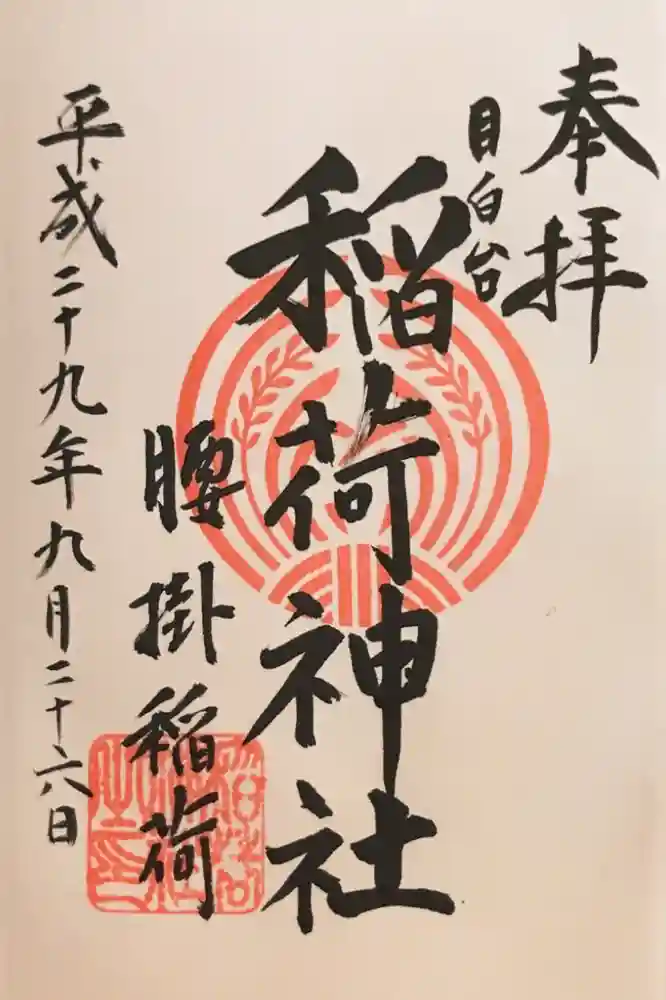 奉拝
目白台
稲荷神社
腰掛稲荷
平成二十九年九月二十六日